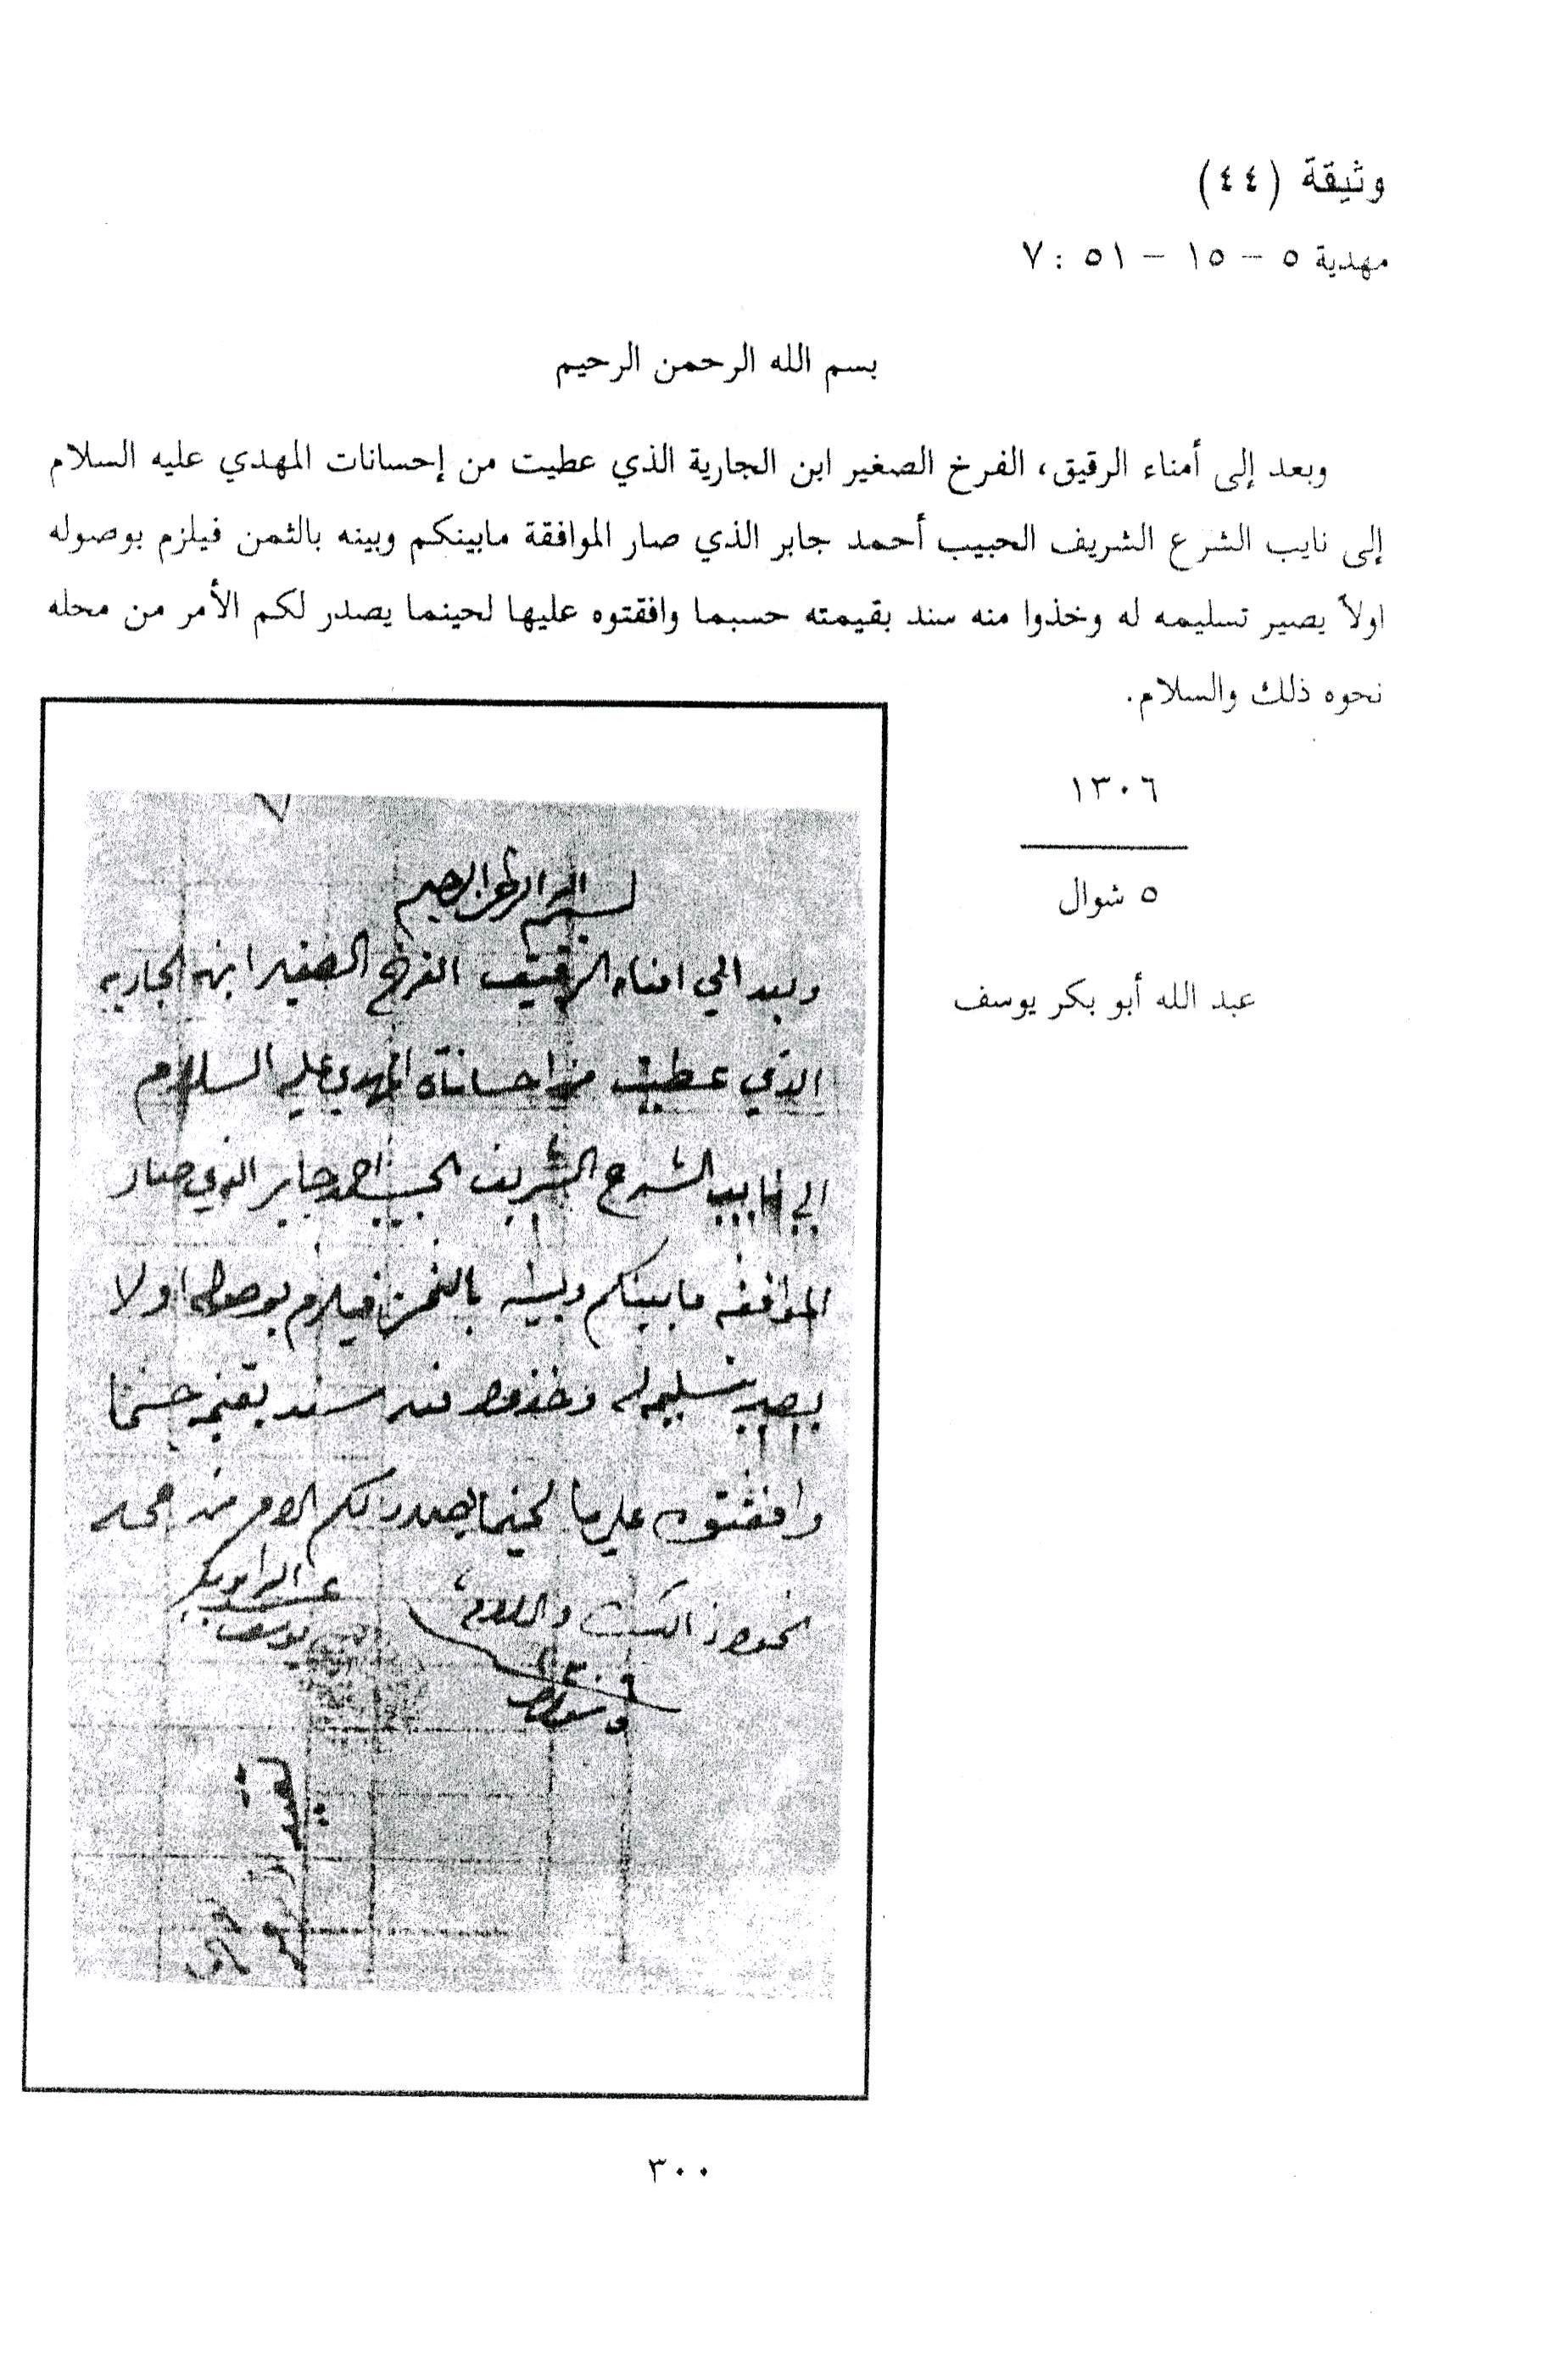 وثيقة (٤٤)
مهدية ٥ – ١٥ – ٥١ : ٧
بسم الله الرحمن الرحيم
وبعد إلى أمناء الرقيق، الفرخ الصغير ابن الجارية الذي عطيت من إحسانات المهدي عليه السلام
إلى نايب الشرع الشريف الحبيب أحمد جابر الذي صار الموافقة مابينكم وبينه بالثمن فيلزم بوصوله
اولاً يصير تسليمه له وخذوا منه سند بقيمته حسبما وافقتوه عليها لحينما يصدر لكم الأمر من محله
نحوه ذلك والسلام.
١٣٠٦
٥ شوال
عبد الله أبو بكر يوسف
٧
بسم الله الرحمن الرحيم
وبعد الي امناء الرقيق الفرخ الصغير ابن الجاريه
الذي عطيت من احساناة المهدي عليه السلام
الي نايب الشرع الشريف الحبيب احمد جابر الذي صار
الموافقه مابينكم وبينه بالثمن فيلزم بوصوله اولا
يصير تسليمه له وخذوا منه سند بقيمته حسبما
وافقتوه عليها لحينما يصدر لكم الامر من محله
نحوه ذالك والسلام
عبد الله ابو بكر
يوسف
شوال
٣٠٠